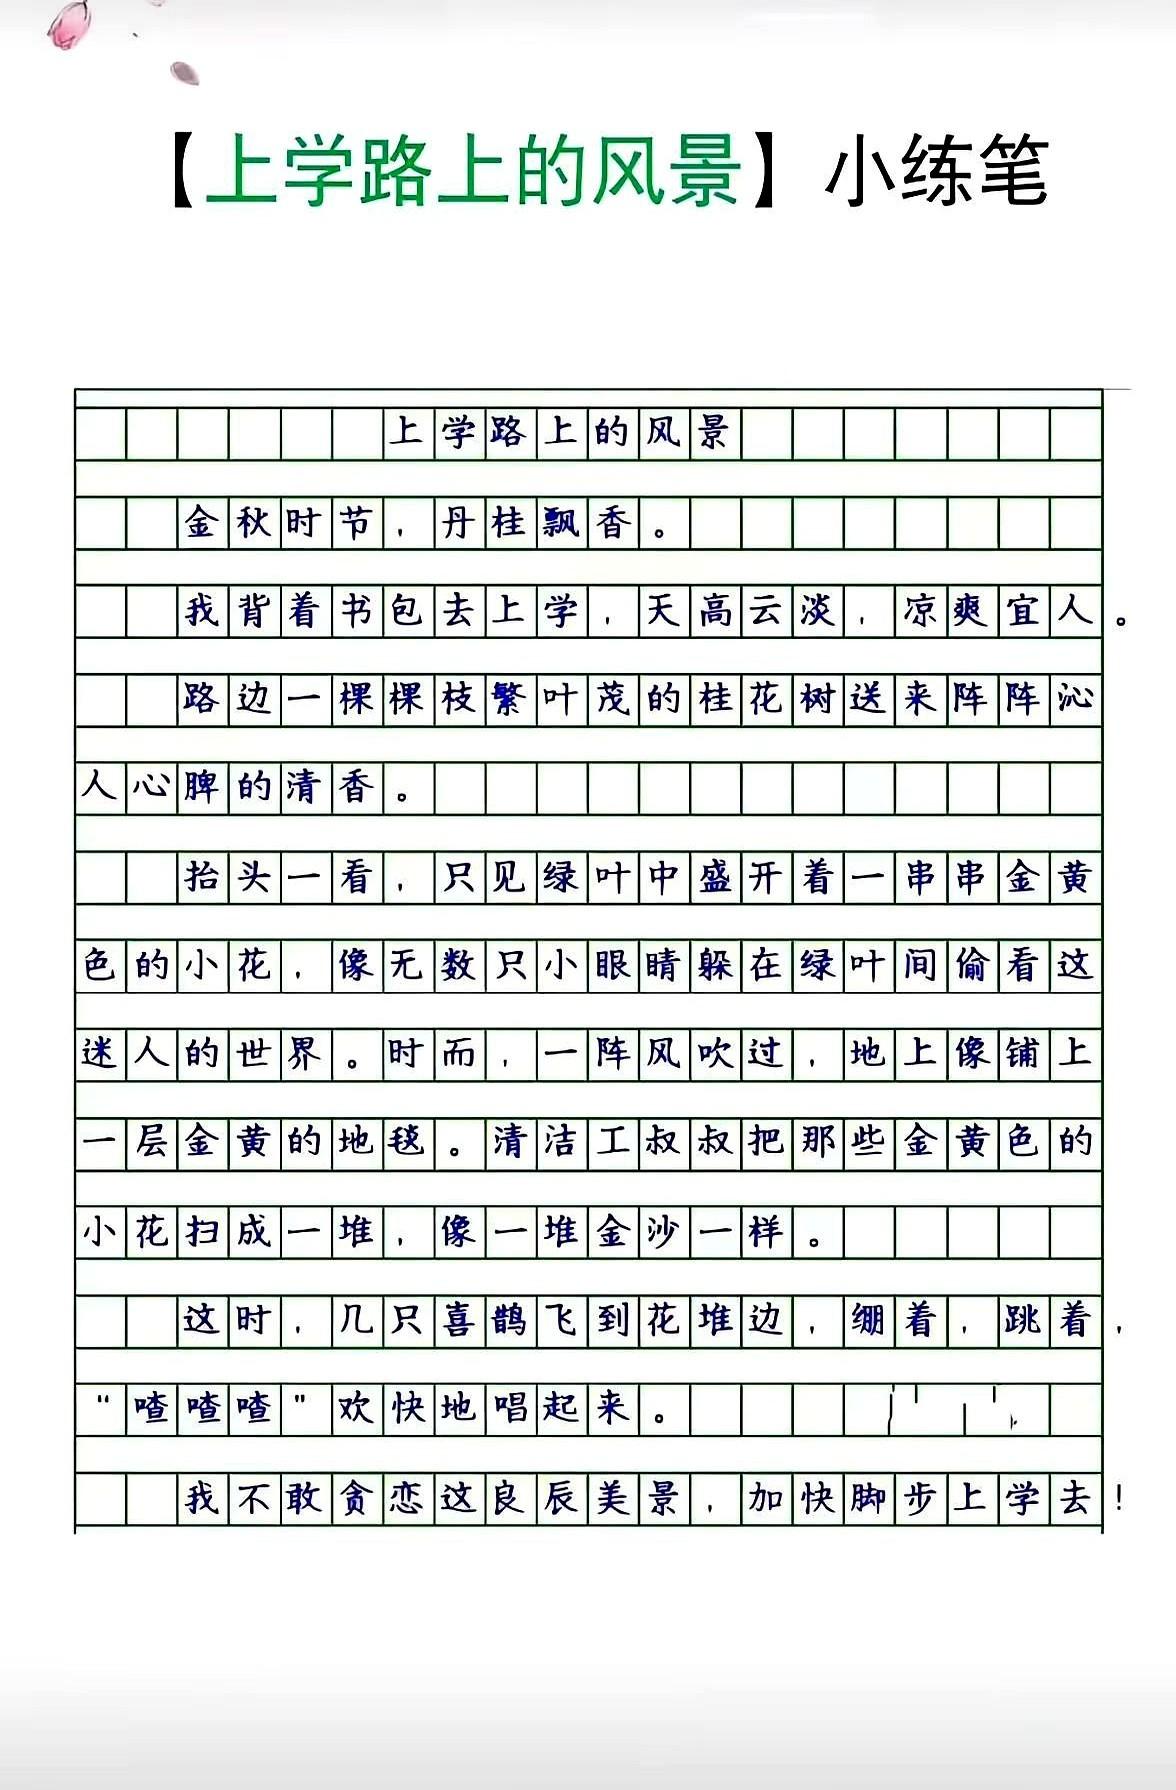 【上学路上的风景】小练笔
上学路上的风景
金秋时节，丹桂飘香。
我背着书包去上学，天高云淡，凉爽宜人。
路边一棵棵枝繁叶茂的桂花树送来阵阵沁
人心脾的清香。
抬头一看，只见绿叶中盛开着一串串金黄
色的小花，像无数只小眼睛躲在绿叶间偷看这
迷人的世界。时而，一阵风吹过，地上像铺上
一层金黄的地毯。清洁工叔叔把那些金黄色的
小花扫成一堆，像一堆金沙一样。
这时，几只喜鹊飞到花堆边，绷着，跳着，
“喳喳喳”欢快地唱起来。
我不敢贪恋这良辰美景，加快脚步上学去！